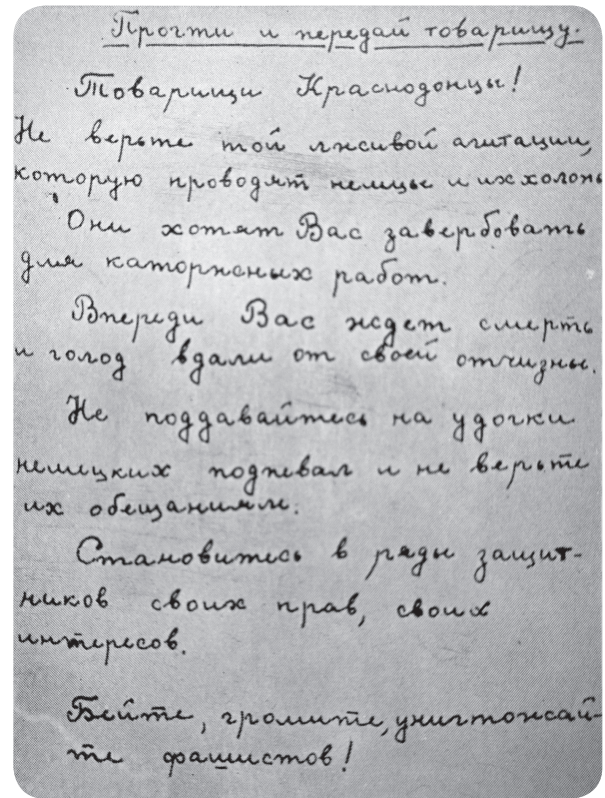 Прочти и передай товарищу.
Товарищи Краснодонцы!
Не верьте той лживой агитации,
которую проводят немцы и их холопы
Они хотят Вас завербовать
для каторжных работ.
Впереди Вас ждет смерть
и голод вдали от своей отчизны.
Не поддавайтесь на удочки
немецких подпевал и не верьте
их обещаниям.
Становитесь в ряды защит-
ников своих прав, своих
интересов.
Бейте, громите, уничтожай-
те фашистов!